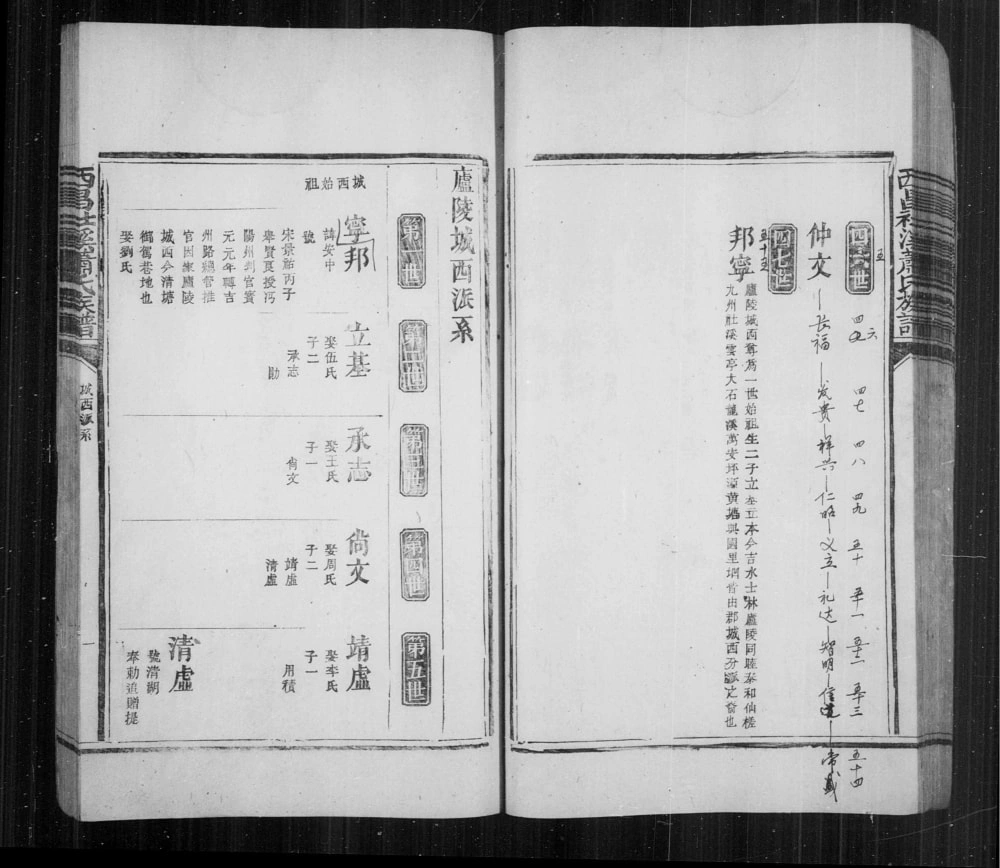 西昌社溪蕭氏族譜
五
仲文
長福
發貴
祥興
仁昭
义立
礼达
智明
帝盛
六
四七
四八
四九
五十
五十一
五十三
五十四
四七世
五十五
邦寧
廬陵城西尊為一世始祖生二子立基立本今吉水士林廬陵同睦泰和仙槎
九州社溪雲亭大石龍溪萬安坪源黄塘與國里垇皆由郡城西分派之裔也
廬陵城西派系
第一世
第二世
第三世
第四世
第五世
城西始祖
寧邦
諱安中
號
宋景祐丙子
舉賢良授沔
陽州判官寳
元元年轉吉
州路總管推
官因家廬陵
城西今清塘
御駕巷地也
娶劉氏
立基
娶伍氏
子二
承志
勛
承志
娶王氏
子一
尙文
尙文
娶周氏
子二
靖虛
清虛
靖虛
娶李氏
子一
用積
清虛
號清湖
奉勅追贈提
西昌社溪蕭氏族譜
城西派系
一